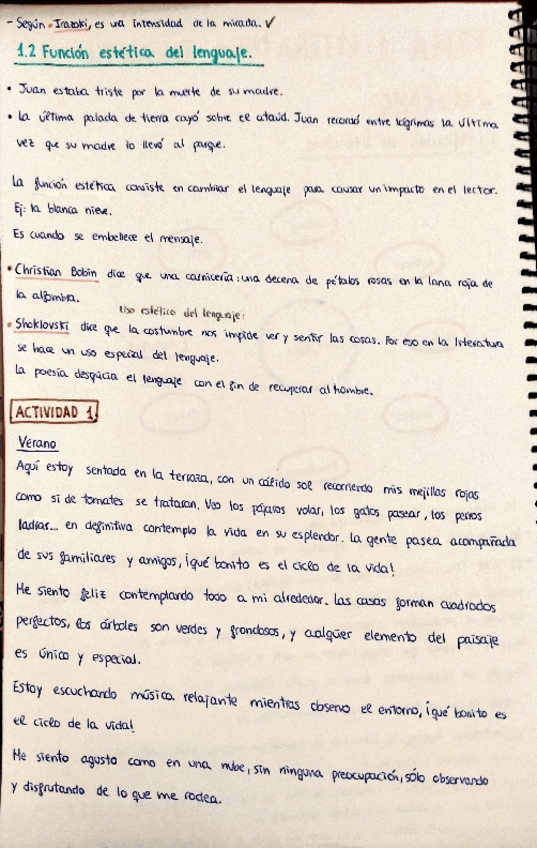 - Según Irazoki, es una intensidad de la mirada. ✓
1.2 Función estética del lenguaje.
• Juan estaba triste por la muerte de su madre.
• La última palada de tierra cayó sobre el ataúd. Juan recordó entre lágrimas la última
vez que su madre lo llevó al parque.
La función estética consiste en cambiar el lenguaje para causar un impacto en el lector.
Ej: la blanca nieve.
Es cuando se embellece el mensaje.
• Christian Bobin dice que una carnicería: una decena de pétalos rosas en la lana roja de
la alfombra.
Uso estético del lenguaje:
• Shoklovski dice que la costumbre nos impide ver y sentir las cosas. Por eso en la literatura
se hace un uso especial del lenguaje.
La poesía desquicia el lenguaje con el fin de recuperar al hombre.
ACTIVIDAD 1
Verano
Aquí estoy sentada en la terraza, con un cálido sol recorriendo mis mejillas rojas
como si de tomates se trataran. Veo los pájaros volar, los gatos pasear, los perros
ladrar... en definitiva contemplo la vida en su esplendor. La gente pasea acompañada
de sus familiares y amigos, ¡qué bonito es el ciclo de la vida!
Me siento feliz contemplando todo a mi alrededor. Las casas forman cuadrados
perfectos, los árboles son verdes y frondosos, y cualquier elemento del paisaje
es único y especial.
Estoy escuchando música relajante mientras observo el entorno, ¡qué bonito es
el ciclo de la vida!
Me siento agusto como en una nube, sin ninguna preocupación, sólo observando
y disfrutando de lo que me rodea.